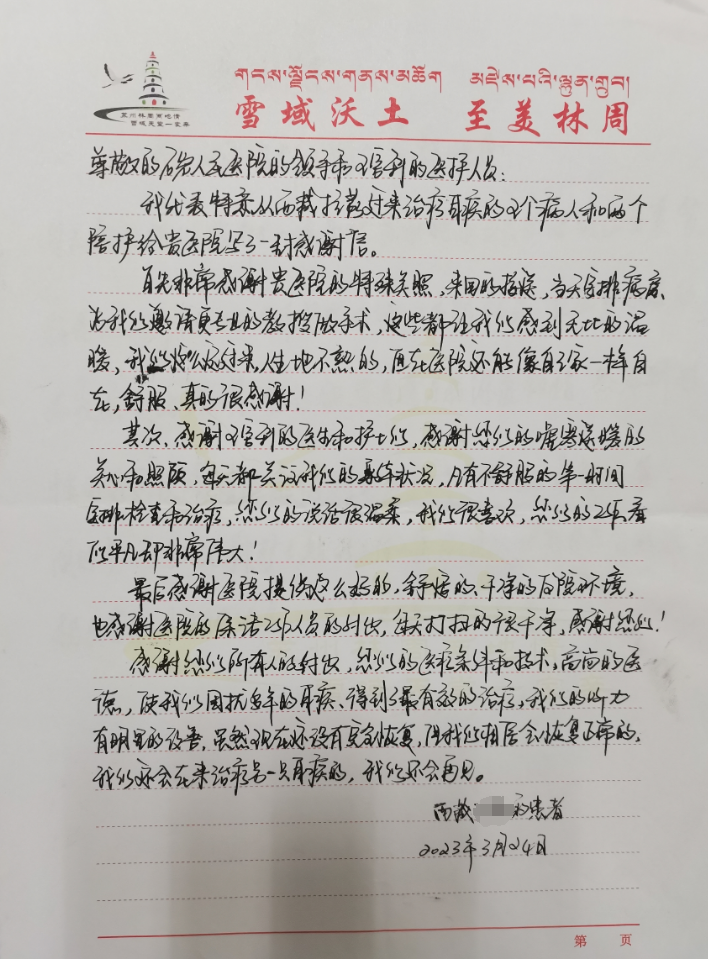 གངས་ལྗོངས་གནས་མཆོག མཛེས་པའི་ལྷུན་གྲུབ།
雪域沃土 至美林周
尊敬的 人民医院的领导和耳鼻科的医护人员:
我代表特意从西藏拉萨过来治疗耳疾的 个病人和两个
陪护给贵医院写了一封感谢信。
首先非常感谢贵医院的特殊关照,来回的接送,当天安排病床
为我们邀请更专业的教授做手术,这些都让我们感到无比的温
暖,我们 过来,人生地不熟的,但在医院还能像自己家一样自
在,舒服、真的很感谢!
其次、感谢耳鼻科的医生和护士们,感谢您们的嘘寒送暖的
关心和照顾,每天都关议我们的身体状况,凡有不舒服的第一时间
安排检查和治疗,您们的说话很温柔,我们很喜欢,您们的工作看
似平凡却非常伟大!
最后感谢医院提供这么好的,舒适的、干净的后院环境,
也感谢医院的保洁工作人员的付出,每天打扫的很干净,感谢您们!
感谢您们所有人的付出,您们的医疗条件和技术,高尚的医
德,使我们困扰多年的耳疾、得到了最有效的治疗,我们的听力
有明显的改善,虽然现在还没有完全恢复,但我们相信会恢复正常的,
我们还会在来治疗另一只耳疾的,我们还会再见。
西藏 的患者
2023年3月24日
第 页